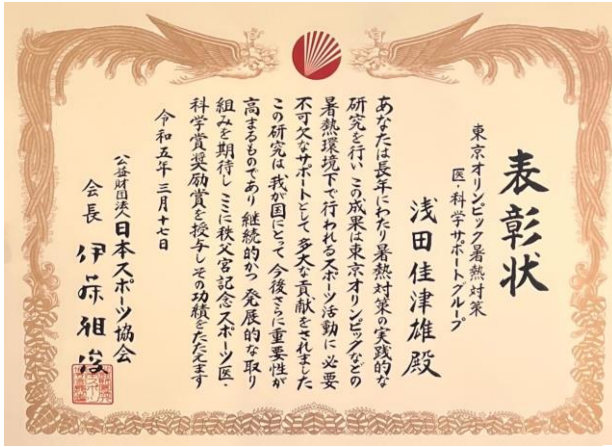 表彰状
東京オリンピック暑熱対策
医・科学サポートグループ
浅田佳津雄殿
あなたは長年にわたり暑熱対策の実践的な
研究を行い この成果は東京オリンピックなどの
暑熱環境下で行われるスポーツ活動に 必要
不可欠なサポートとして 多大な貢献をされました
この研究は 我が国にとって 今後さらに重要性が
高まるものであり 継続的かつ 発展的な取り
組みを期待し ここに秩父宮記念スポーツ医・
科学賞奨励賞を授与し その功績をたたえます
令和五年三月十七日
公益財団法人日本スポーツ協会
会長 伊藤雅俊